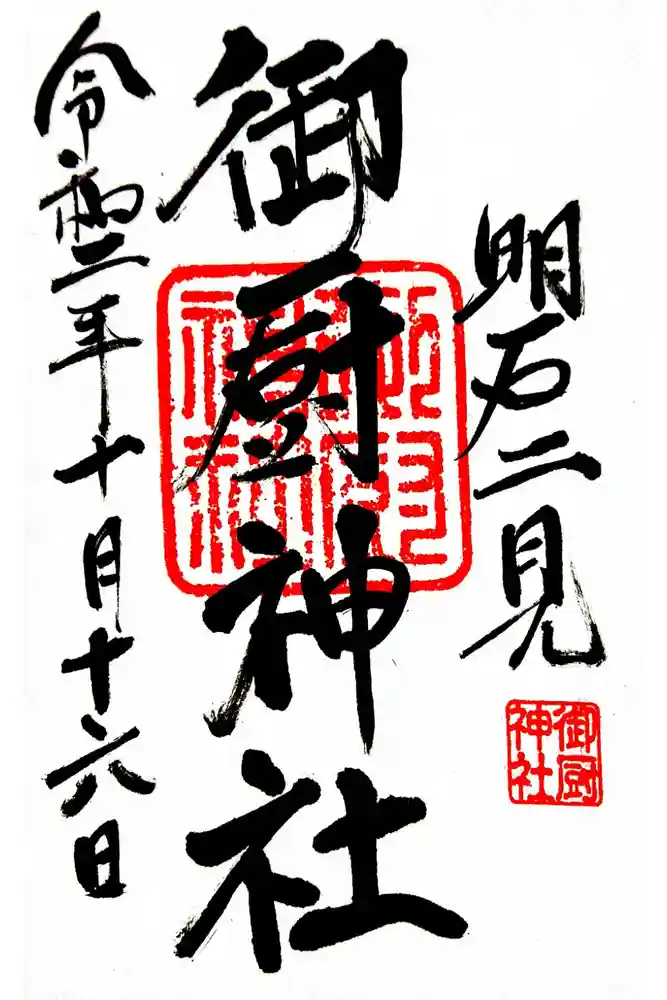 明石二見
御厨神社
御厨
神社
御厨神社
令和二年十月十六日